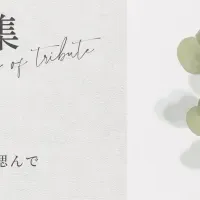 集
of tribute
偲んで